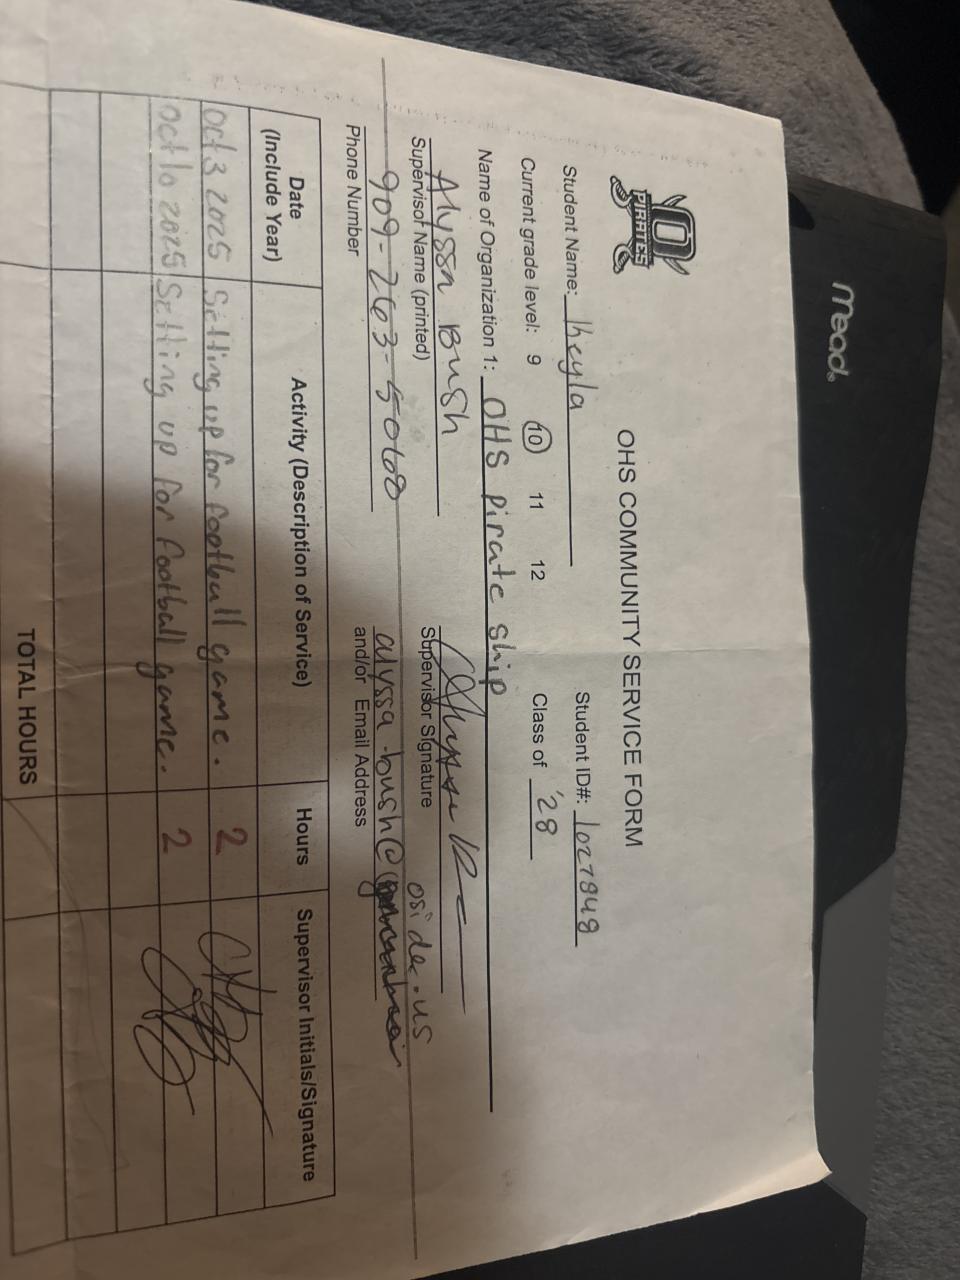 mead
O
PIRATES
OHS COMMUNITY SERVICE FORM
Student Name: Iheyla Student ID#: 1027848
Current grade level: 9 10 11 12 Class of '28
Name of Organization 1: OHS pirate ship
Alyssa Bush
Supervisor Name (printed) Supervisor Signature
oside.us
909-263- alyssa.bush@
Phone Number and/or Email Address
Date (Include Year) Activity (Description of Service) Hours Supervisor Initials/Signature
Oct 3 2025 Setting up for football game. 2
Oct 10 2025 Setting up for football game. 2
TOTAL HOURS